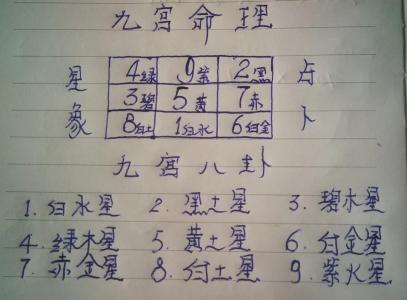 九宫命理
星 4绿 9紫 2黑 占
3碧 5黄 7赤
象 8白土 1白水 6白金 卜
九宫八卦
1.白水星 2.黑土星 3.碧木星
4.绿木星 5.黄土星 6.白金星
7.赤金星 8.白土星 9.紫火星